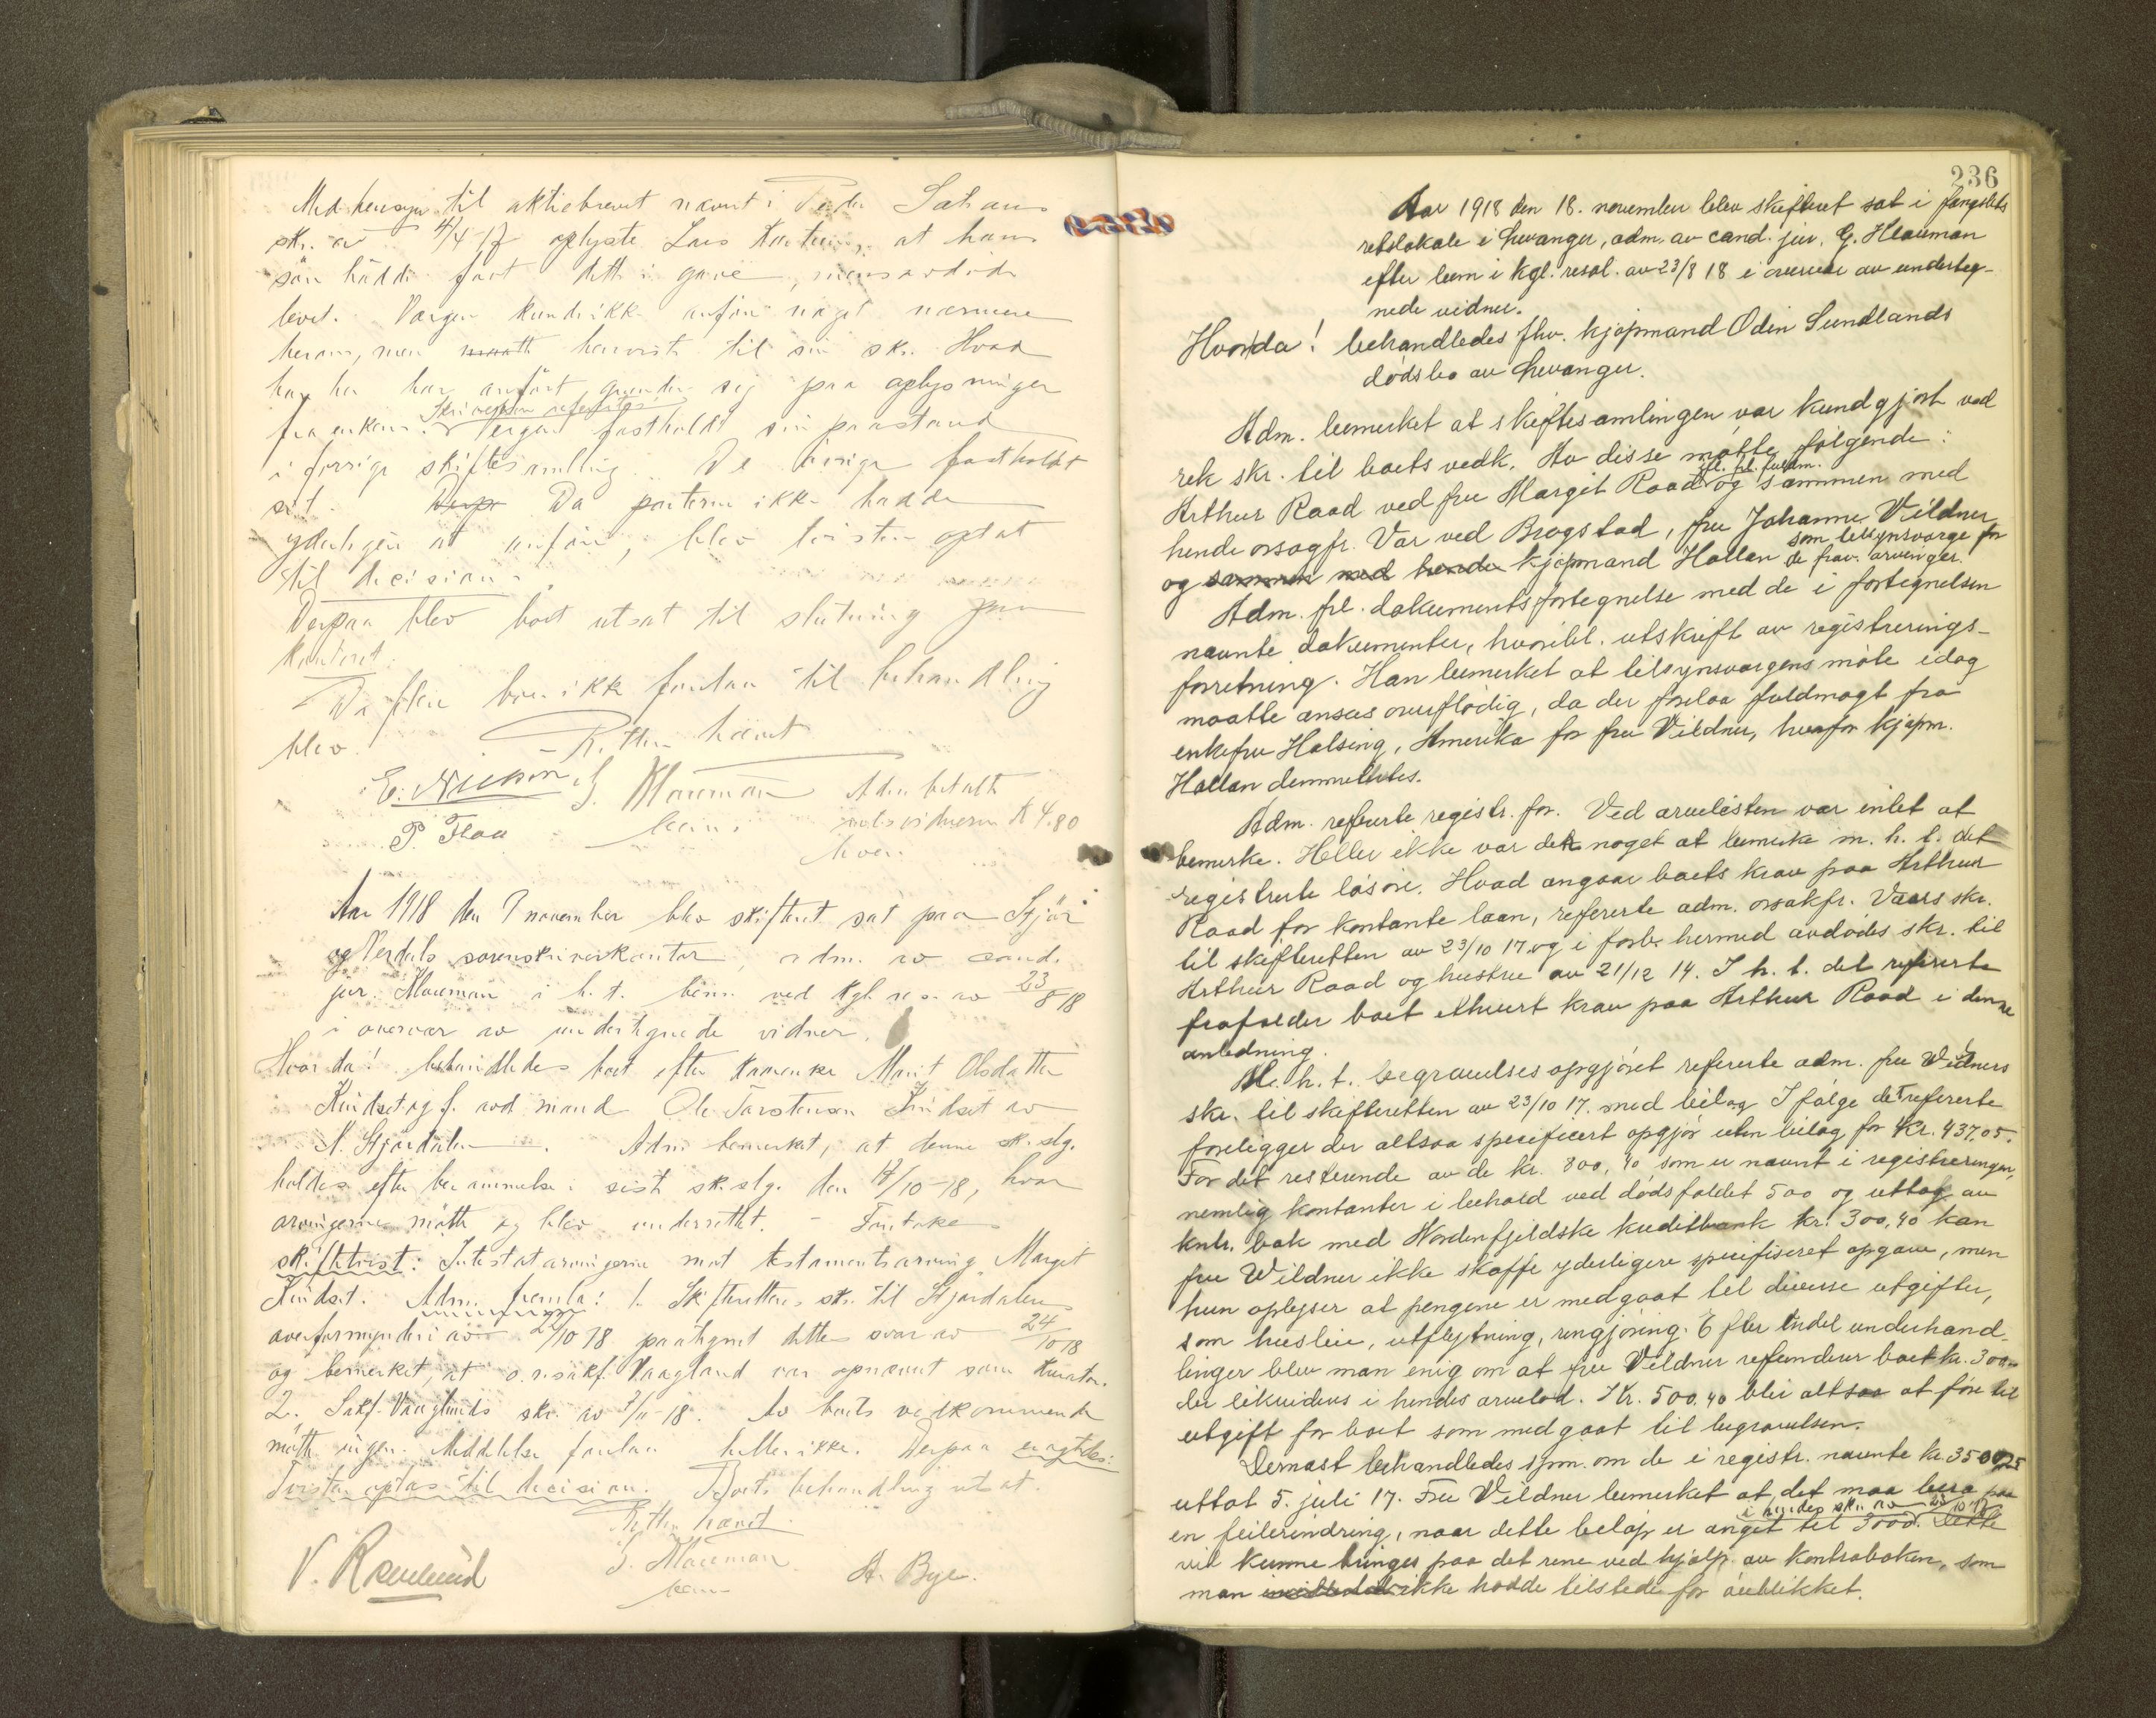 Med hensyn til aktiebrevet nævnt i Peder
skr. av 4/4 17 oplyste Lars at hans
søn hadde faat dette i gave, mens avdøde
levet. Vergen kunde ikke anføre noget nærmere
herom, men henviste til sin skr. Hvad
han her har anført, grunder sig paa oplysninger
Skrivelsen refertes.
fra enken. Vergen fastholdt sin paastand
i forrige skiftesamling. De øvrige fastholdt
sit. Da parterne ikke hadde
yderligere at anføre, blev tvisten optat
til decision.
Derpaa blev boet utsat til slutning paa
kontoret.
Da flere boer ikke forelaa til behandling
blev
Retten hævet
E. G. Klouman Adm. betalte
P. Floa bem. retsvidnerne K 4.80
hver.
Aar 1918 den 9 november blev skifteret sat paa Stjør
og Verdals sorenskriverkontor, adm. av cand.
jur. Klouman i h. t. bem. ved Kgl. res. av 23/8 18
i overvær av undertegnede vidner.
Hvorda! behandledes boet efter Kaarenke Marit Olsdatter
Kindset og f. avd mand Ole Torstensen Kindset av
N. Stjørdalen. Adm. bemerket, at denne sk. slg.
holdes efter berammelse i sist sk. slg. den /10-18, hvor
arvingerne møtte og blev underrettet. - Foretokes
skiftetvist: Intestatarvingerne mot testamentsarving Margit
Kindset. Adm. fremla: 1. Skifterettens skr. til Stjørdalens
overformynderi av 22/10 18 paategnet dettes svar av 24/10 18
og bemerket, at o.r.sakf. Vaagland var opnævnt som kurator.
2. Sakf. Vaaglands skr. av 7/11-18. Av boets vedkommende
møtte ingen. Meddelelse forelaa heller ikke. Derpaa eragtedes:
Tvisten optas til decision. Boets behandling utsat.
Retten hævet.
G. Klouman
V. Ramlund bem. A. Bye.
236
Aar 1918 den 18. november blev skifteret sat i fængslets
retslokale i Levanger, adm. av cand. jur. G. Klouman
efter bem i kgl. resol. av 23/8 18 i overvær av underteg-
nede vidner.
Hvorda! behandledes fhv. kjøpmand Odin Sundlands
dødsbo av Levanger.
Adm. bemerket at skiftesamlingen var kundgjort ved
rek skr. til boets vedk. Av disse møtte følgende:
ifl. frl. fuldm.
Arthur Raad ved fru Margit Raad og sammen med
hende orsagfr. Vår ved Brogstad, fru Johanne Vildner
som tilsynsværge for
og sammen med hende kjøpmand Hallan de frav. arvinger.
Adm. frl. dokumentsfortegnelse med de i fortegnelsen
nævnte dokumenter, hvoribl. utskrift av registrerings-
forretning. Han bemerket at tilsynsvergens møte idag
maatte ansees overflødig, da der forelaa fuldmagt fra
enkefru Halsing, Amerika for fru Vildner, hvorfor kjøpm.
Hallan demmitertes.
Adm. referte registr. for. Ved arvelisten var intet at
bemerke. Heller ikke var det noget at bemerke m. h. t. det
registrerte løsøre. Hvad angaar boets krav paa Arthur
Raad for kontante laan, refererte adm. orsakfr. Vaars skr.
til skifteretten av 23/10 17. og i forb. hermed avdødes skr. til
Arthur Raad og hustru av 21/12 14. I h. t. det refererte
frafalder boet ethvert krav paa Arthur Raad i denne
anledning.
M. h. t. begravelsesopgjøret refererte adm. fru Wildners
skr. til skifteretten av 23/10 17. med bilag I følge det refererte
foreligger der altsaa specificert opgjør uten bilag for Kr. 437,05.
For det resterende av de kr. 800,40 som er nævnt i registreringen,
nemlig kontanter i behold ved dødsfaldet 500 og uttag av
kntr. bok med Nordenfjeldske kreditbank kr. 300,40 kan
fru Wildner ikke skaffe yderligere specifiseret opgave, men
hun oplyser at pengene er medgaat til diverse utgifter,
som husleie, utflytning, rengjøring. Efter endel underhand-
linger blev man enig om at fru Vildner refunderer boet kr. 300.-
der likvideres i hendes arvelod. Kr. 500,40 blir altsaa at føre til
utgift for boet som medgaat til begravelsen.
Dernæst behandledes spm. om de i registr. nævnte kr. 3500,25
uttat 5. juli 17. Fru Vildner bemerket at det maa bero paa
i hendes skr. av 23/10 17
en feilerindring, naar dette beløp er anget til 3000. Dette
vil kunne bringes paa det rene ved hjælp av kontraboken, som
man ikke hadde tilstede for øieblikket.